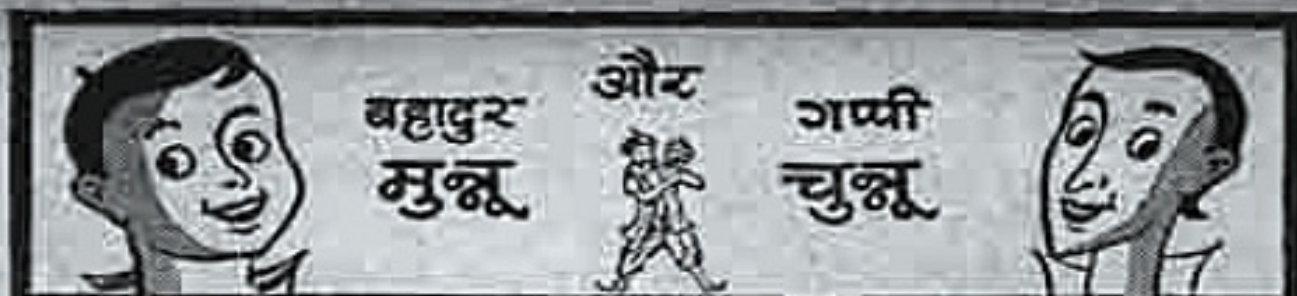 बहादुर
मुन्नू
और
गप्पी
चुन्नू